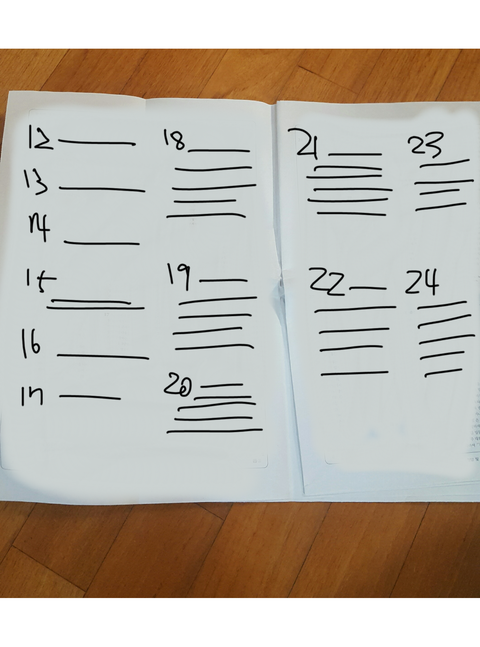 12
13
14
15
16
17
18
19
20
21
22
23
24